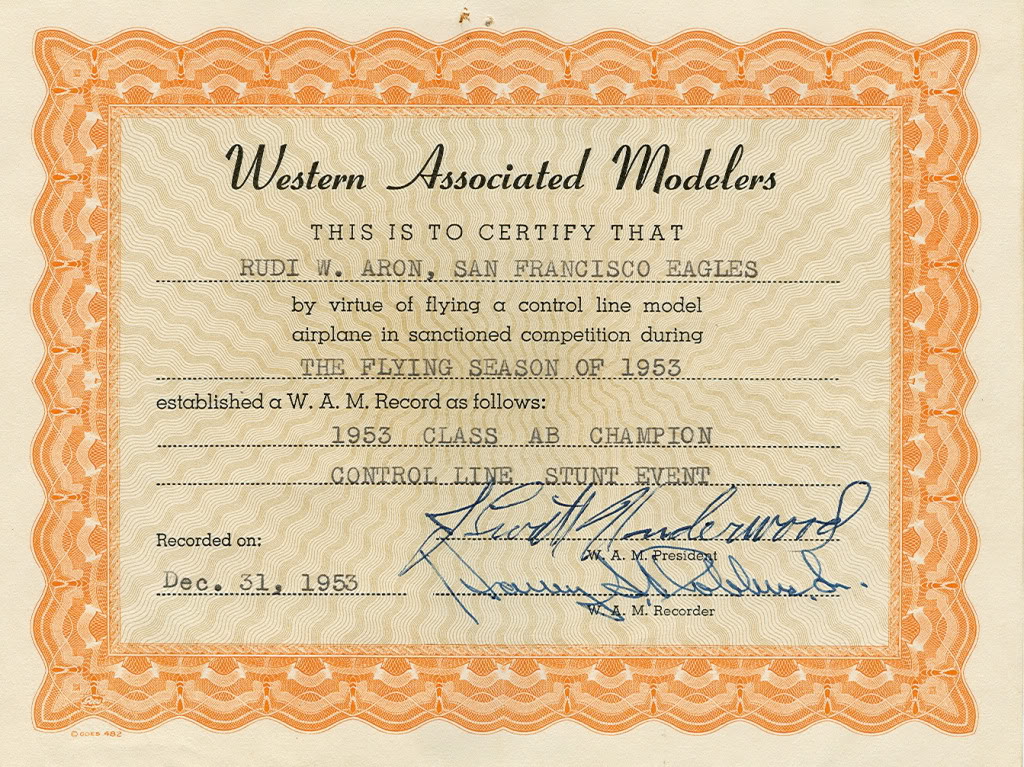 Western Associated Modelers
THIS IS TO CERTIFY THAT
RUDI W. ARON, SAN FRANCISCO EAGLES
by virtue of flying a control line model
airplane in sanctioned competition during
THE FLYING SEASON OF 1953
established a W. A. M. Record as follows:
1953 CLASS AB CHAMPION
CONTROL LINE STUNT EVENT
Underwood
Recorded on:
W. A. M. President
Dec. 31, 1953
W. A. M. Recorder
© GOES 482